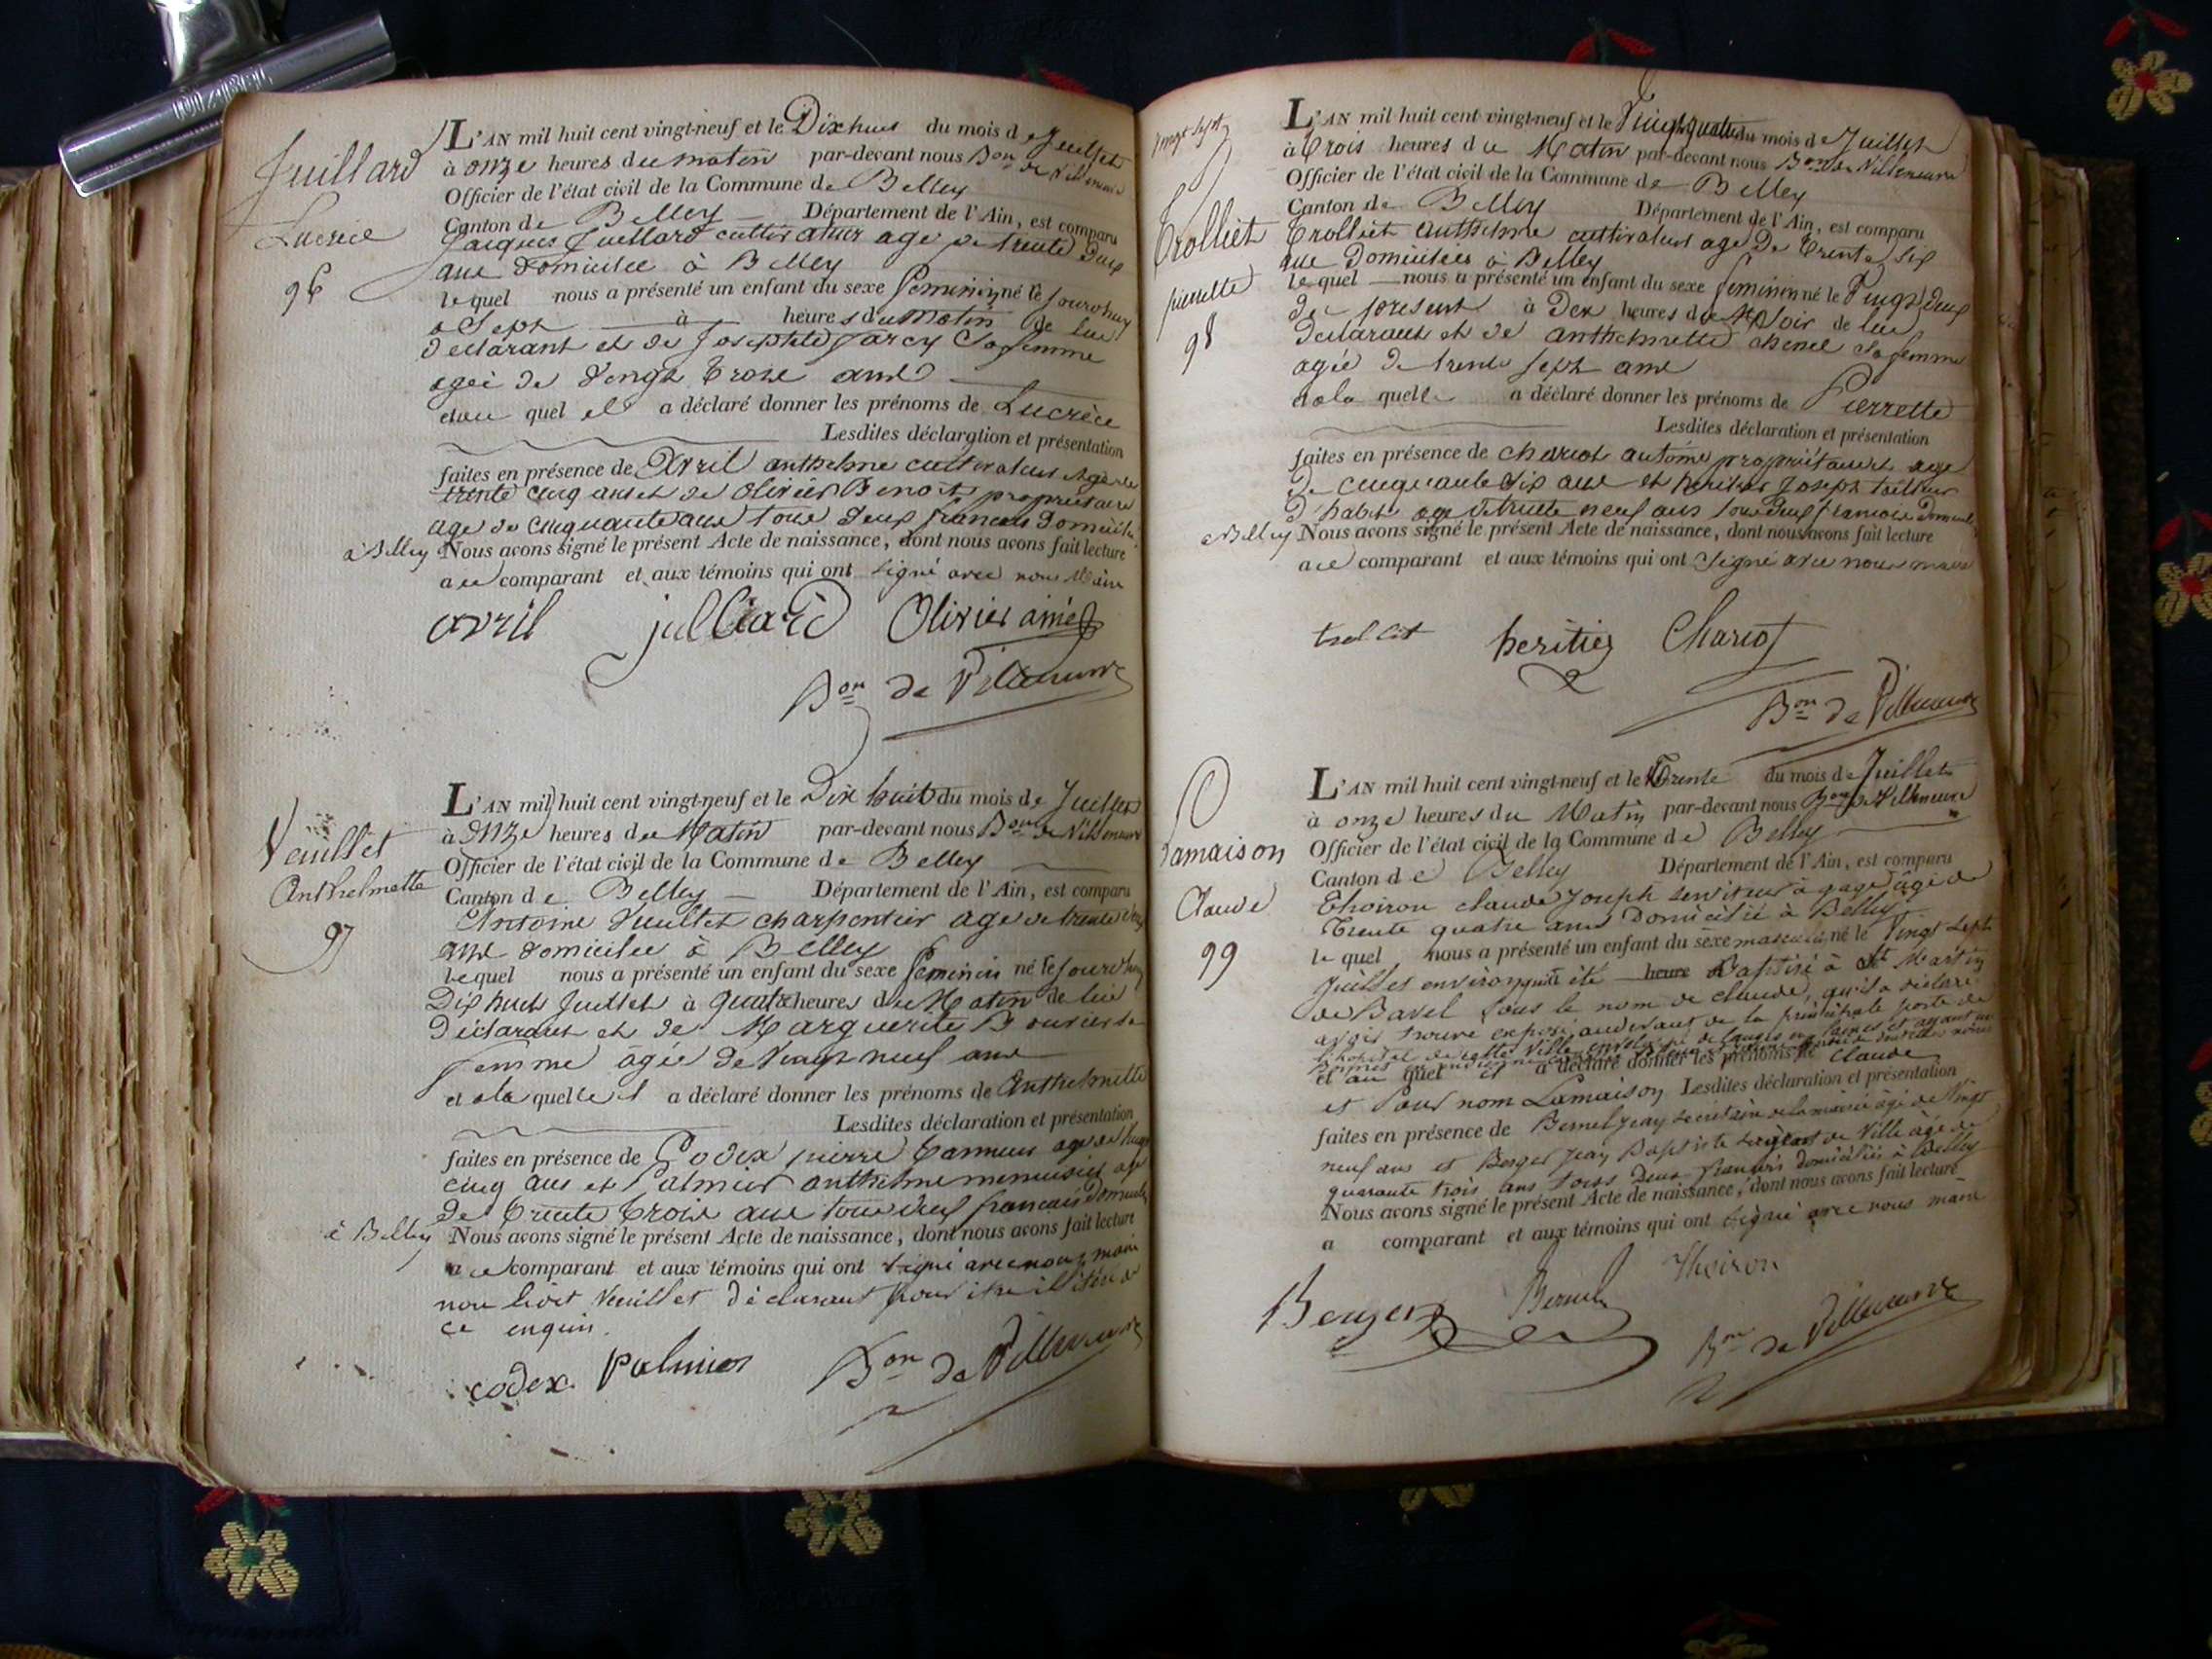 Juillard
Lucrèce
96
L'AN mil huit cent vingt-neuf et le Dix huit du mois de Juillet
à onze heures du matin par-devant nous Bon de Villeneuve
Officier de l'état civil de la Commune de Belley
Canton de Belley Département de l'Ain, est comparu
Jacques Juillard cultivateur agé de trente deux
ans domicilié à Belley
lequel nous a présenté un enfant du sexe feminin né le jourdhuy
a Sept à heures du Matin de lui
declarant et de Josephte Jarcy Sa femme
agée de Vingt trois ans
et au quel il a déclaré donner les prénoms de Lucrèce
Lesdites déclaration et présentation
faites en présence de Avril anthelme cultivateur agé de
trente cinq ans et de Olivier Benoit propriétaire
age de cinquante ans tous deux francais domiciliés
à Belley Nous avons signé le présent Acte de naissance, dont nous avons fait lecture
au comparant et aux témoins qui ont signé avec nous Maire
avril julliard Olivier ainé
Bon de Villeneuve
Veuillet
Anthelmette
97
L'AN mil huit cent vingt-neuf et le Dix huit du mois de Juillet
à onze heures du Matin par-devant nous Bon de Villeneuve
Officier de l'état civil de la Commune de Belley
Canton de Belley Département de l'Ain, est comparu
Antoine Vuillet charpentier age de trente deux
ans domicilié à Belley
lequel nous a présenté un enfant du sexe feminin né le jourdhuy
Dix huit Juillet à quatre heures du Matin de lui
Déclarant et de Marguerite Bouvier sa
femme âgée de Vingt neuf ans
et a la quelle il a déclaré donner les prénoms de Anthelmette
Lesdites déclaration et présentation
faites en présence de Codex pierre tanneur age de vingt
cinq ans et Palmier anthelme menuisier age
de trente trois ans tous deux francais Domiciliés
à Belley Nous avons signé le présent Acte de naissance, dont nous avons fait lecture
au comparant et aux témoins qui ont signé avec nous maire
non ledit Veuillet déclarant pour être illitéré de
ce enquis.
codex Palmier Bon de Villeneuve
Vingt Sept
Trolliet
pierrette
98
L'AN mil huit cent vingt-neuf et le Vingt quatre du mois de Juillet
à trois heures du Matin par-devant nous Bon de Villeneuve
Officier de l'état civil de la Commune de Belley
Canton de Belley Département de l'Ain, est comparu
Trolliet anthelme cultivateur age de trente six
ans domiciliés à Belley
lequel nous a présenté un enfant du sexe feminin né le Vingt deux
du present à Dix heures du Soir de lui
declarant et de anthelmette chenel Sa femme
agée de trente sept ans
et a la quelle a déclaré donner les prénoms de Pierrette
Lesdites déclaration et présentation
faites en présence de chariot antoine propriétaire age
de cinquante six ans et heritier Joseph tailleur
d'habits age de trente neuf ans tous deux francais domiciliés
a Belley Nous avons signé le présent Acte de naissance, dont nous avons fait lecture
au comparant et aux témoins qui ont signé avec nous maire
trolliet heritier Chariot
Bon de Villeneuve
Lamaison
Claude
99
L'AN mil huit cent vingt-neuf et le Trente du mois de Juillet
à onze heures du Matin par-devant nous Bon de Villeneuve
Officier de l'état civil de la Commune de Belley
Canton de Belley Département de l'Ain, est comparu
Thoiron claude Joseph serviteur à gage âgé de
Trente quatre ans Domicilié à Belley
le quel nous a présenté un enfant du sexe masculin né le Vingt Sept
Juillet environ qui a été heure Baptisé à St Martin
de Bavel sous le nom de claude, qu'il a déclaré
avoir trouvé exposé audevant de la principale porte de
l'hopital de cette Ville enveloppé de langes
et au quel il a déclaré donner les prénoms de Claude
et Pour nom Lamaison Lesdites déclaration et présentation
faites en présence de Bernel Jean secretaire de la mairie agé de Vingt
neuf ans et Berger Jean Baptiste sergent de Ville âgé de
quarante trois ans tous Deux francais domiciliés à Belley
Nous avons signé le présent Acte de naissance, dont nous avons fait lecture
a comparant et aux témoins qui ont signé avec nous maire
Berger Bernel Thoiron
Bon de Villeneuve